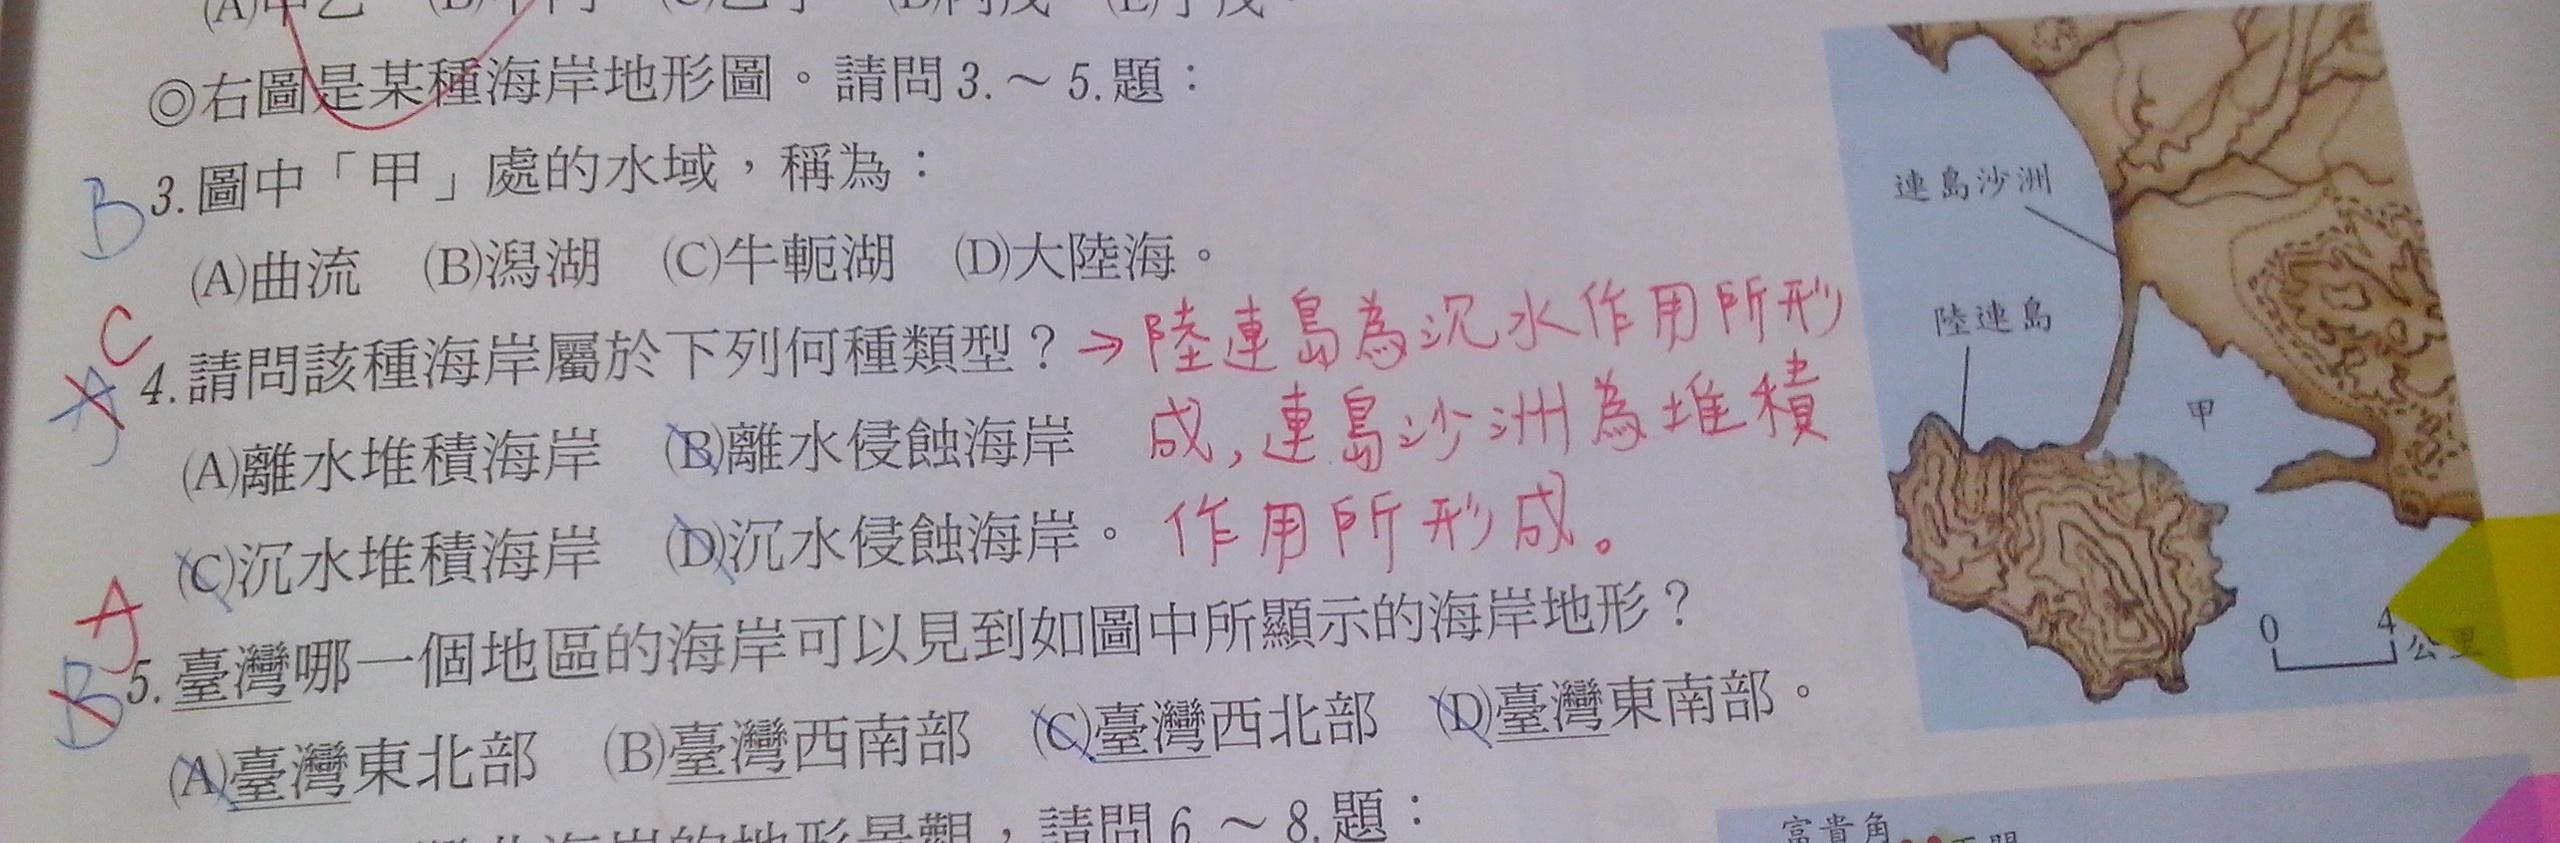 ◎右圖是某種海岸地形圖。請問3.～5.題：
B 3.圖中「甲」處的水域，稱為：
(A)曲流 (B)潟湖 (C)牛軛湖 (D)大陸海。
C
A 4.請問該種海岸屬於下列何種類型？→陸連島為沉水作用所形
(A)離水堆積海岸 (B)離水侵蝕海岸 成,連島沙洲為堆積
(C)沉水堆積海岸 (D)沉水侵蝕海岸。 作用所形成。
A
B 5.臺灣哪一個地區的海岸可以見到如圖中所顯示的海岸地形？
(A)臺灣東北部 (B)臺灣西南部 (C)臺灣西北部 (D)臺灣東南部。
海岸的地形景觀，請問6.～8.題：
連島沙洲
陸連島
甲
0 4公里
富貴角